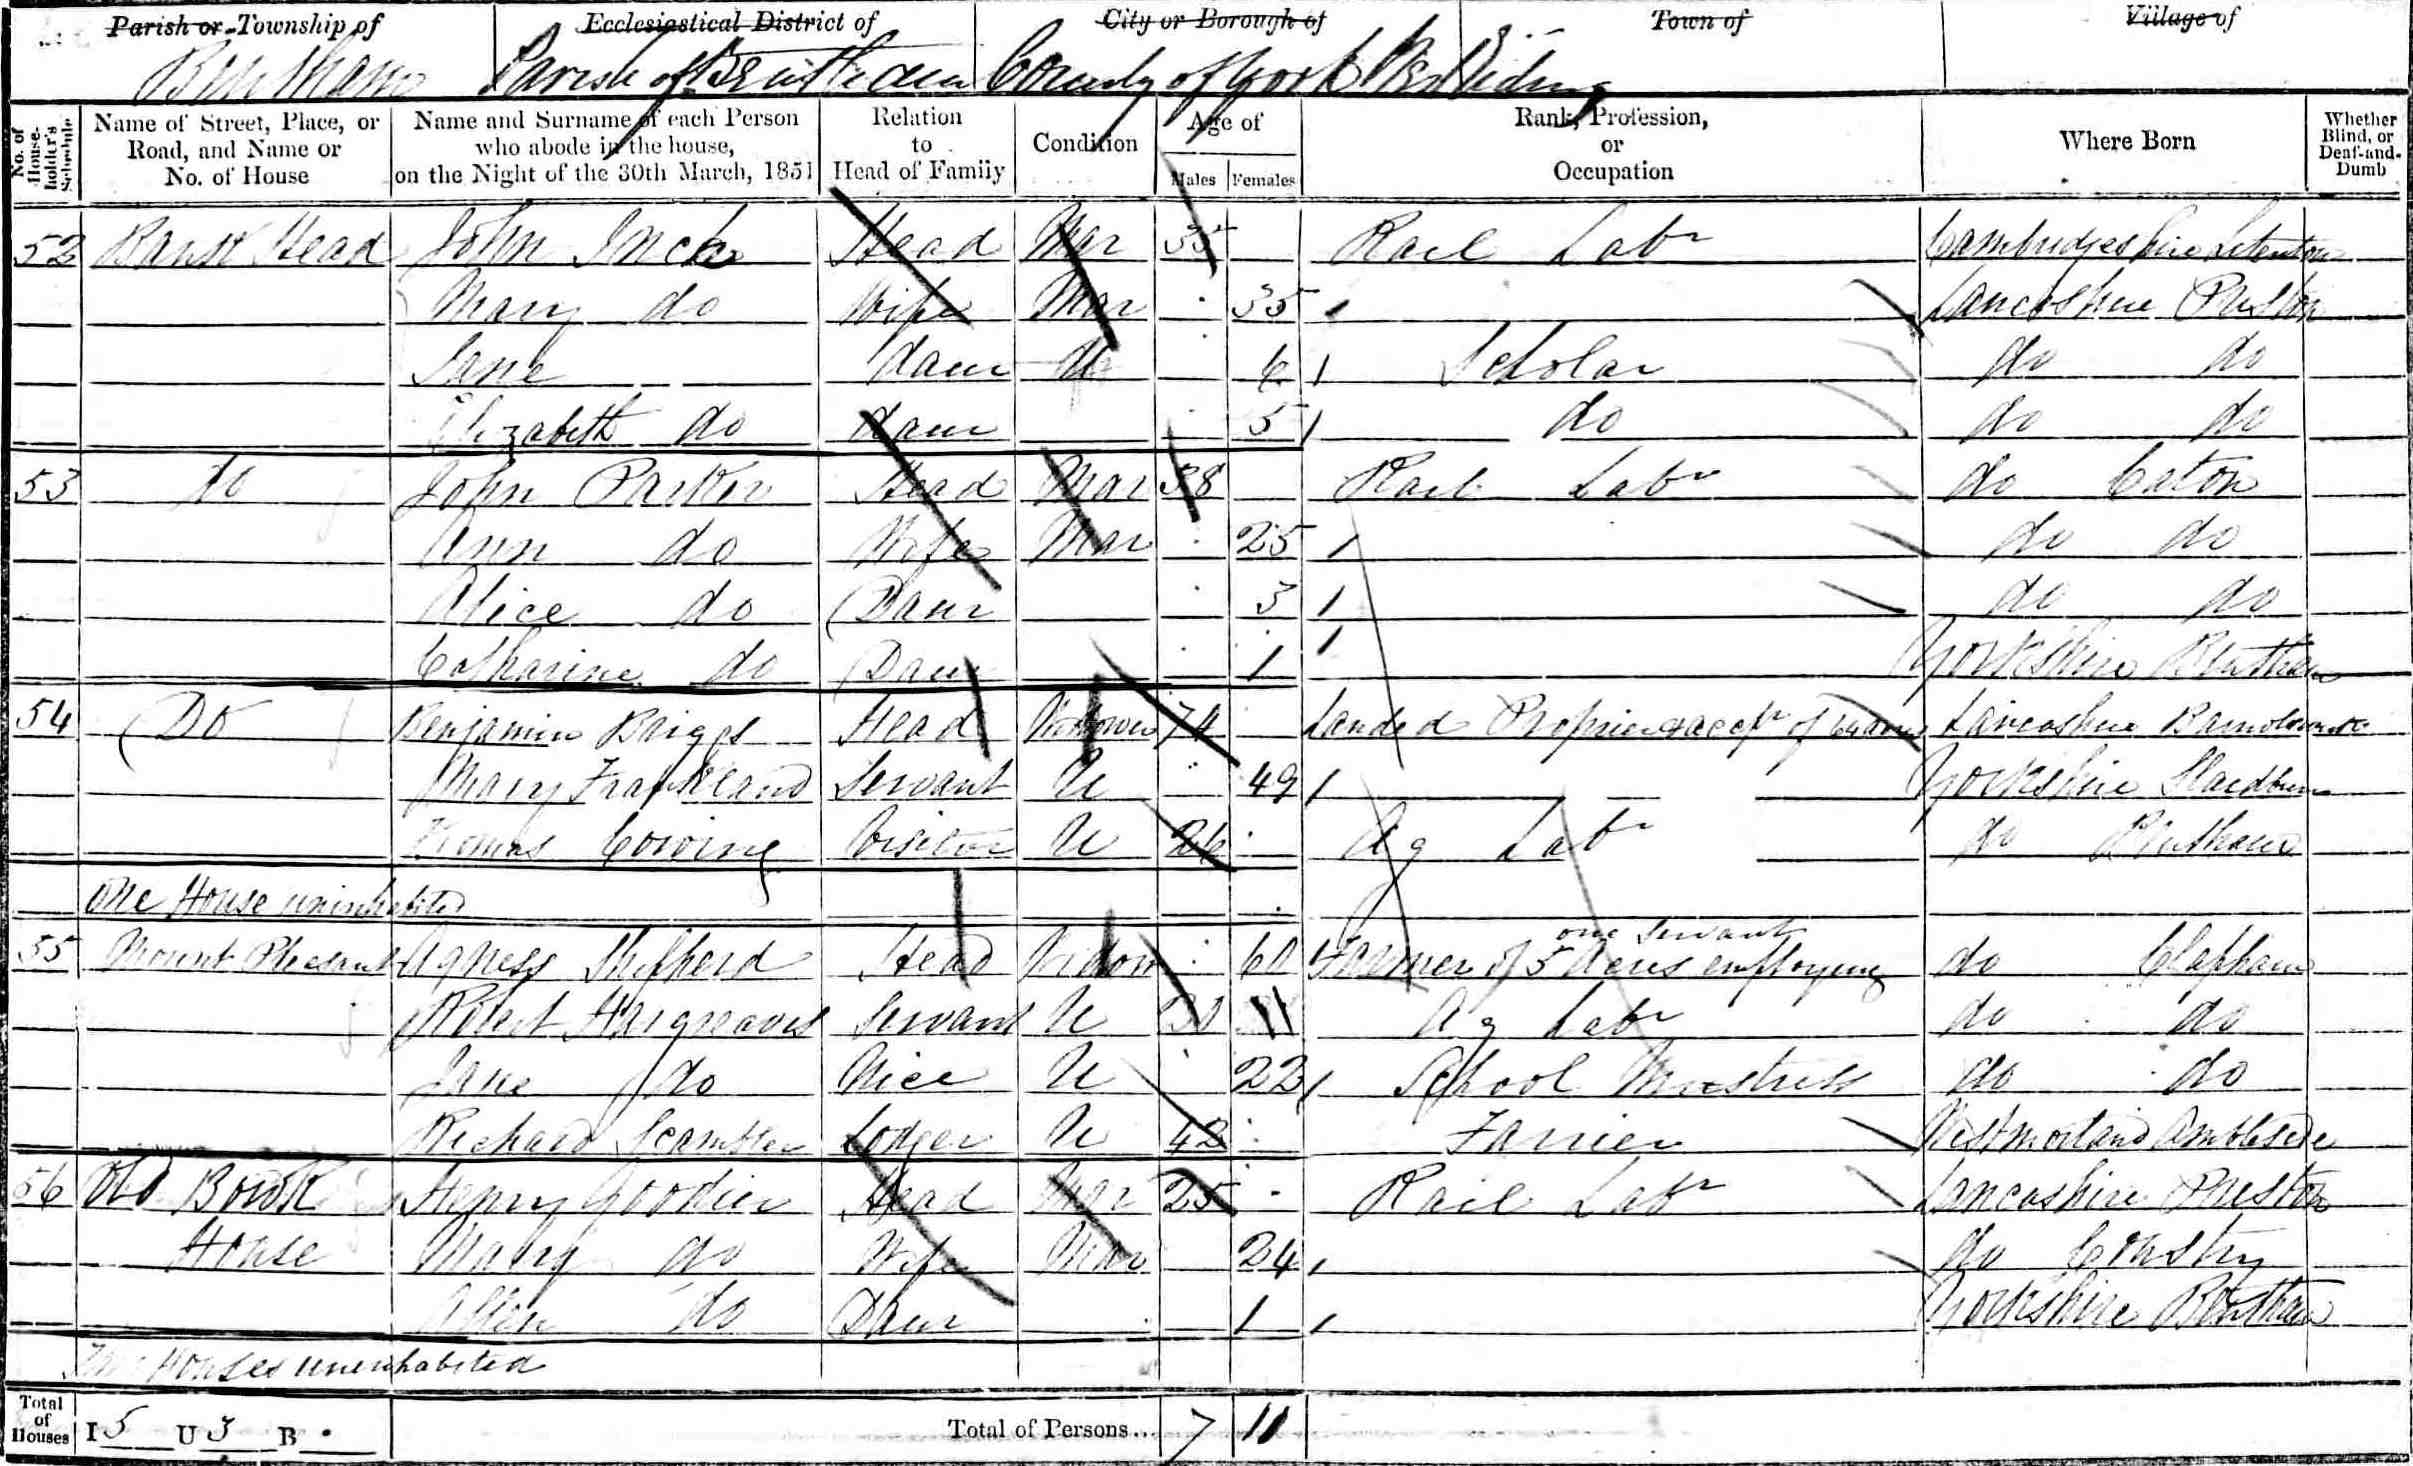 Parish or Township of Ecclesiastical District of City or Borough of Town of Village of
Bentham Parish of Bentham County of York West Riding
No. of House-holder's Schedule Name of Street, Place, or Road, and Name or No. of House Name and Surname of each Person who abode in the house, on the Night of the 30th March, 1851 Relation to Head of Family Condition Age of Males Females Rank, Profession, or Occupation Where Born Whether Blind, or Deaf-and-Dumb
52 Bank Head John Inck Head Mar 35 Rail Labr Cambridgeshire
Mary do Wife Mar 35 Lancashire Preston
Jane daur U 6 Scholar do do
Elizabeth do daur 5 do do do
53 do John Parker Head Mar 38 Rail Labr do Caton
Ann do Wife Mar 25 do do
Alice do Daur 3 do do
Catharine do Daur 1 Yorkshire Bentham
54 Do Benjamin Briggs Head Widower 74 Landed Proprietor of acres Lancashire
Mary Frankland Servant U 49 Yorkshire Slaidburn
Thomas Cowing Visitor U 26 Ag Labr do Bentham
One House uninhabited
55 Mount Pleasant Agness Shepherd Head Widow 60 Farmer of 5 Acres employing one servant do Clapham
Robert Hargreaves Servant U Ag Labr do do
Jane do Nice U 22 School Mistress do do
Richard Scambler Lodger U 42 Farrier Westmorland Ambleside
56 Old Henry Goodier Head Mar 25 Rail Labr Lancashire Preston
House Mary do Wife Mar 24 do
do Daur 1 Yorkshire Bentham
Houses uninhabited
Total of Houses I 5 U 3 B . Total of Persons... 7 11